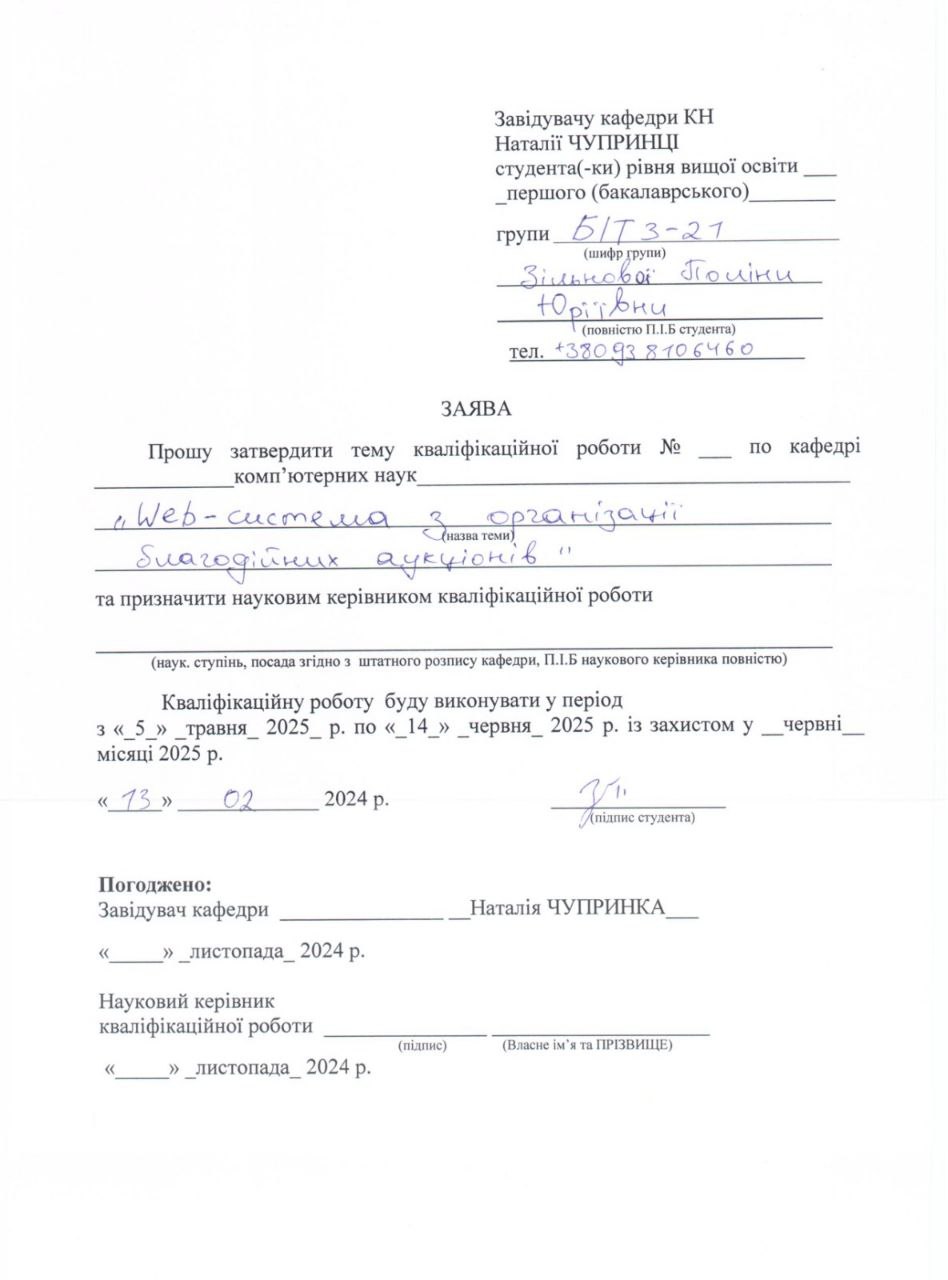 Завідувачу кафедри КН
Наталії ЧУПРИНЦІ
студента(-ки) рівня вищої освіти ___
_першого (бакалаврського)________
групи БІТ 3-21
(шифр групи)
Зільнової Поліни
Юріївни
(повністю П.І.Б студента)
тел. +380938106460
ЗАЯВА
Прошу затвердити тему кваліфікаційної роботи № ___ по кафедрі
_____________комп’ютерних наук________________________________________
"Web-система з організації
(назва теми)
благодійних аукціонів"
та призначити науковим керівником кваліфікаційної роботи
(наук. ступінь, посада згідно з штатного розпису кафедри, П.І.Б наукового керівника повністю)
Кваліфікаційну роботу буду виконувати у період
з «_5_» _травня_ 2025_ р. по «_14_» _червня_ 2025 р. із захистом у __червні__
місяці 2025 р.
«13» 02 2024 р.
(підпис студента)
Погоджено:
Завідувач кафедри _______________ __Наталія ЧУПРИНКА___
«_____» _листопада_ 2024 р.
Науковий керівник
кваліфікаційної роботи _______________ ____________________
(підпис) (Власне ім’я та ПРІЗВИЩЕ)
«_____» _листопада_ 2024 р.